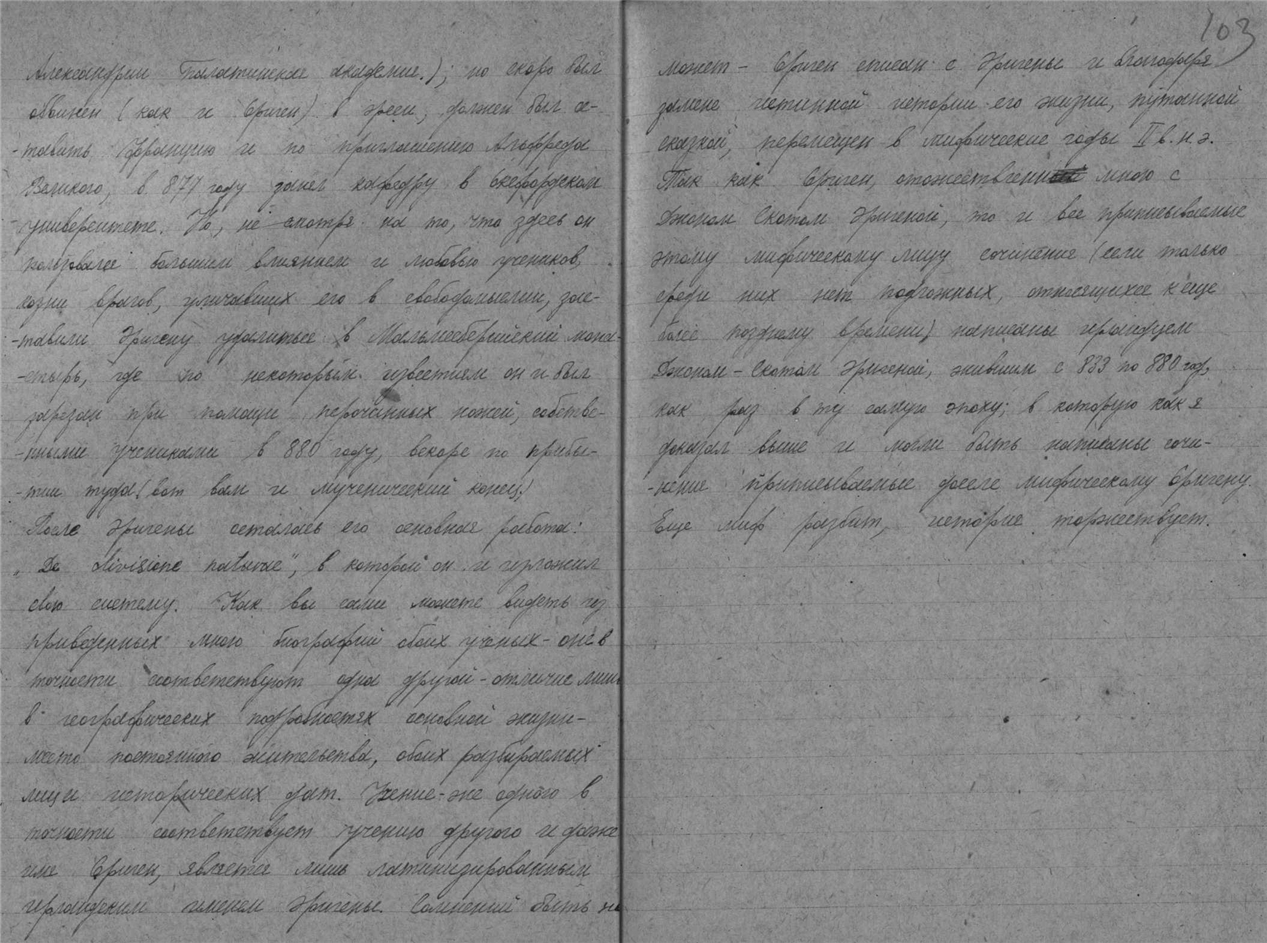 Александрии Палатинская академия.); но скоро был
обвинен (как и Ориген) в ереси, должен был ос-
-тавить Францию и по приглашению Альфреда
Великого, в 877 году занял кафедру в Оксфордском
университете. Но, не смотря на то, что здесь он
пользовался большим влиянием и любовью учеников,
козни врагов, уличавших его в свободомыслии, зас-
-тавили Эригену удалиться в Мальмесберийский мона-
-стырь, где по некоторым известиям он и был
зарезан при помощи перочинных ножей, собстве-
-нными учениками в 880 году, вскоре по прибы-
-тии туда (вот вам и мученический конец!)
После Эригены осталась его основная работа:
„De divisione naturae", в которой он и изложил
свою систему. Как вы сами можете видеть из
приведенных мною биографий обоих ученых - они в
точности соответствуют одна другой - отличие лишь
в географических подробностях основной жизни -
место постоянного жительства, обоих разбираемых
лиц и исторических дат. Учение-же одного в
точности соответствует учению другого и даже
имя Ориген, является лишь латинизированным
ирландским именем Эригены. Сомнений быть не
103
может - Ориген списан с Эригены и благодаря
замене истинной истории его жизни, путанной
сказкой, перемещен в мифические годы II в. н. э.
Так как Ориген, отожествлен мною с
Джоном Скотом Эригеной, то и все приписываемые
этому мифическому лицу сочинения (если только
среди них нет подложных, относящихся к еще
более позднему времени) написаны ирландцем
Джоном-Скотом Эригеной, жившим с 833 по 880 год,
как раз в ту самую эпоху; в которую как я
доказал выше и могли быть написаны сочи-
-нения приписываемые мифическому Оригену.
Еще миф разбит, история торжествует.